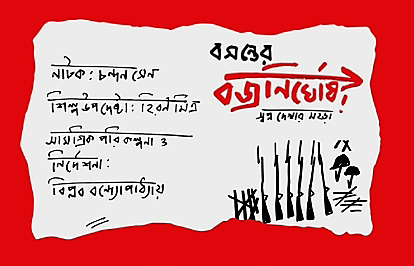 নাটক : চন্দন সেন
শিল্প উপদেষ্টা : হিরণ মিত্র
সামগ্রিক পরিকল্পনা ও
নির্দেশনা :
বিপ্লব বন্দ্যোপাধ্যায়
বসন্তের
বজ্রনির্ঘোষ?
স্বপ্ন দেখার মহড়া